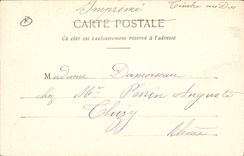 Imprimé
Timbre au Dos
CARTE POSTALE
Ce côté est exclusivement réservé à l'adresse
Madame Damoiseau
chez Mr Perrin Auguste
Thizy
Rhône